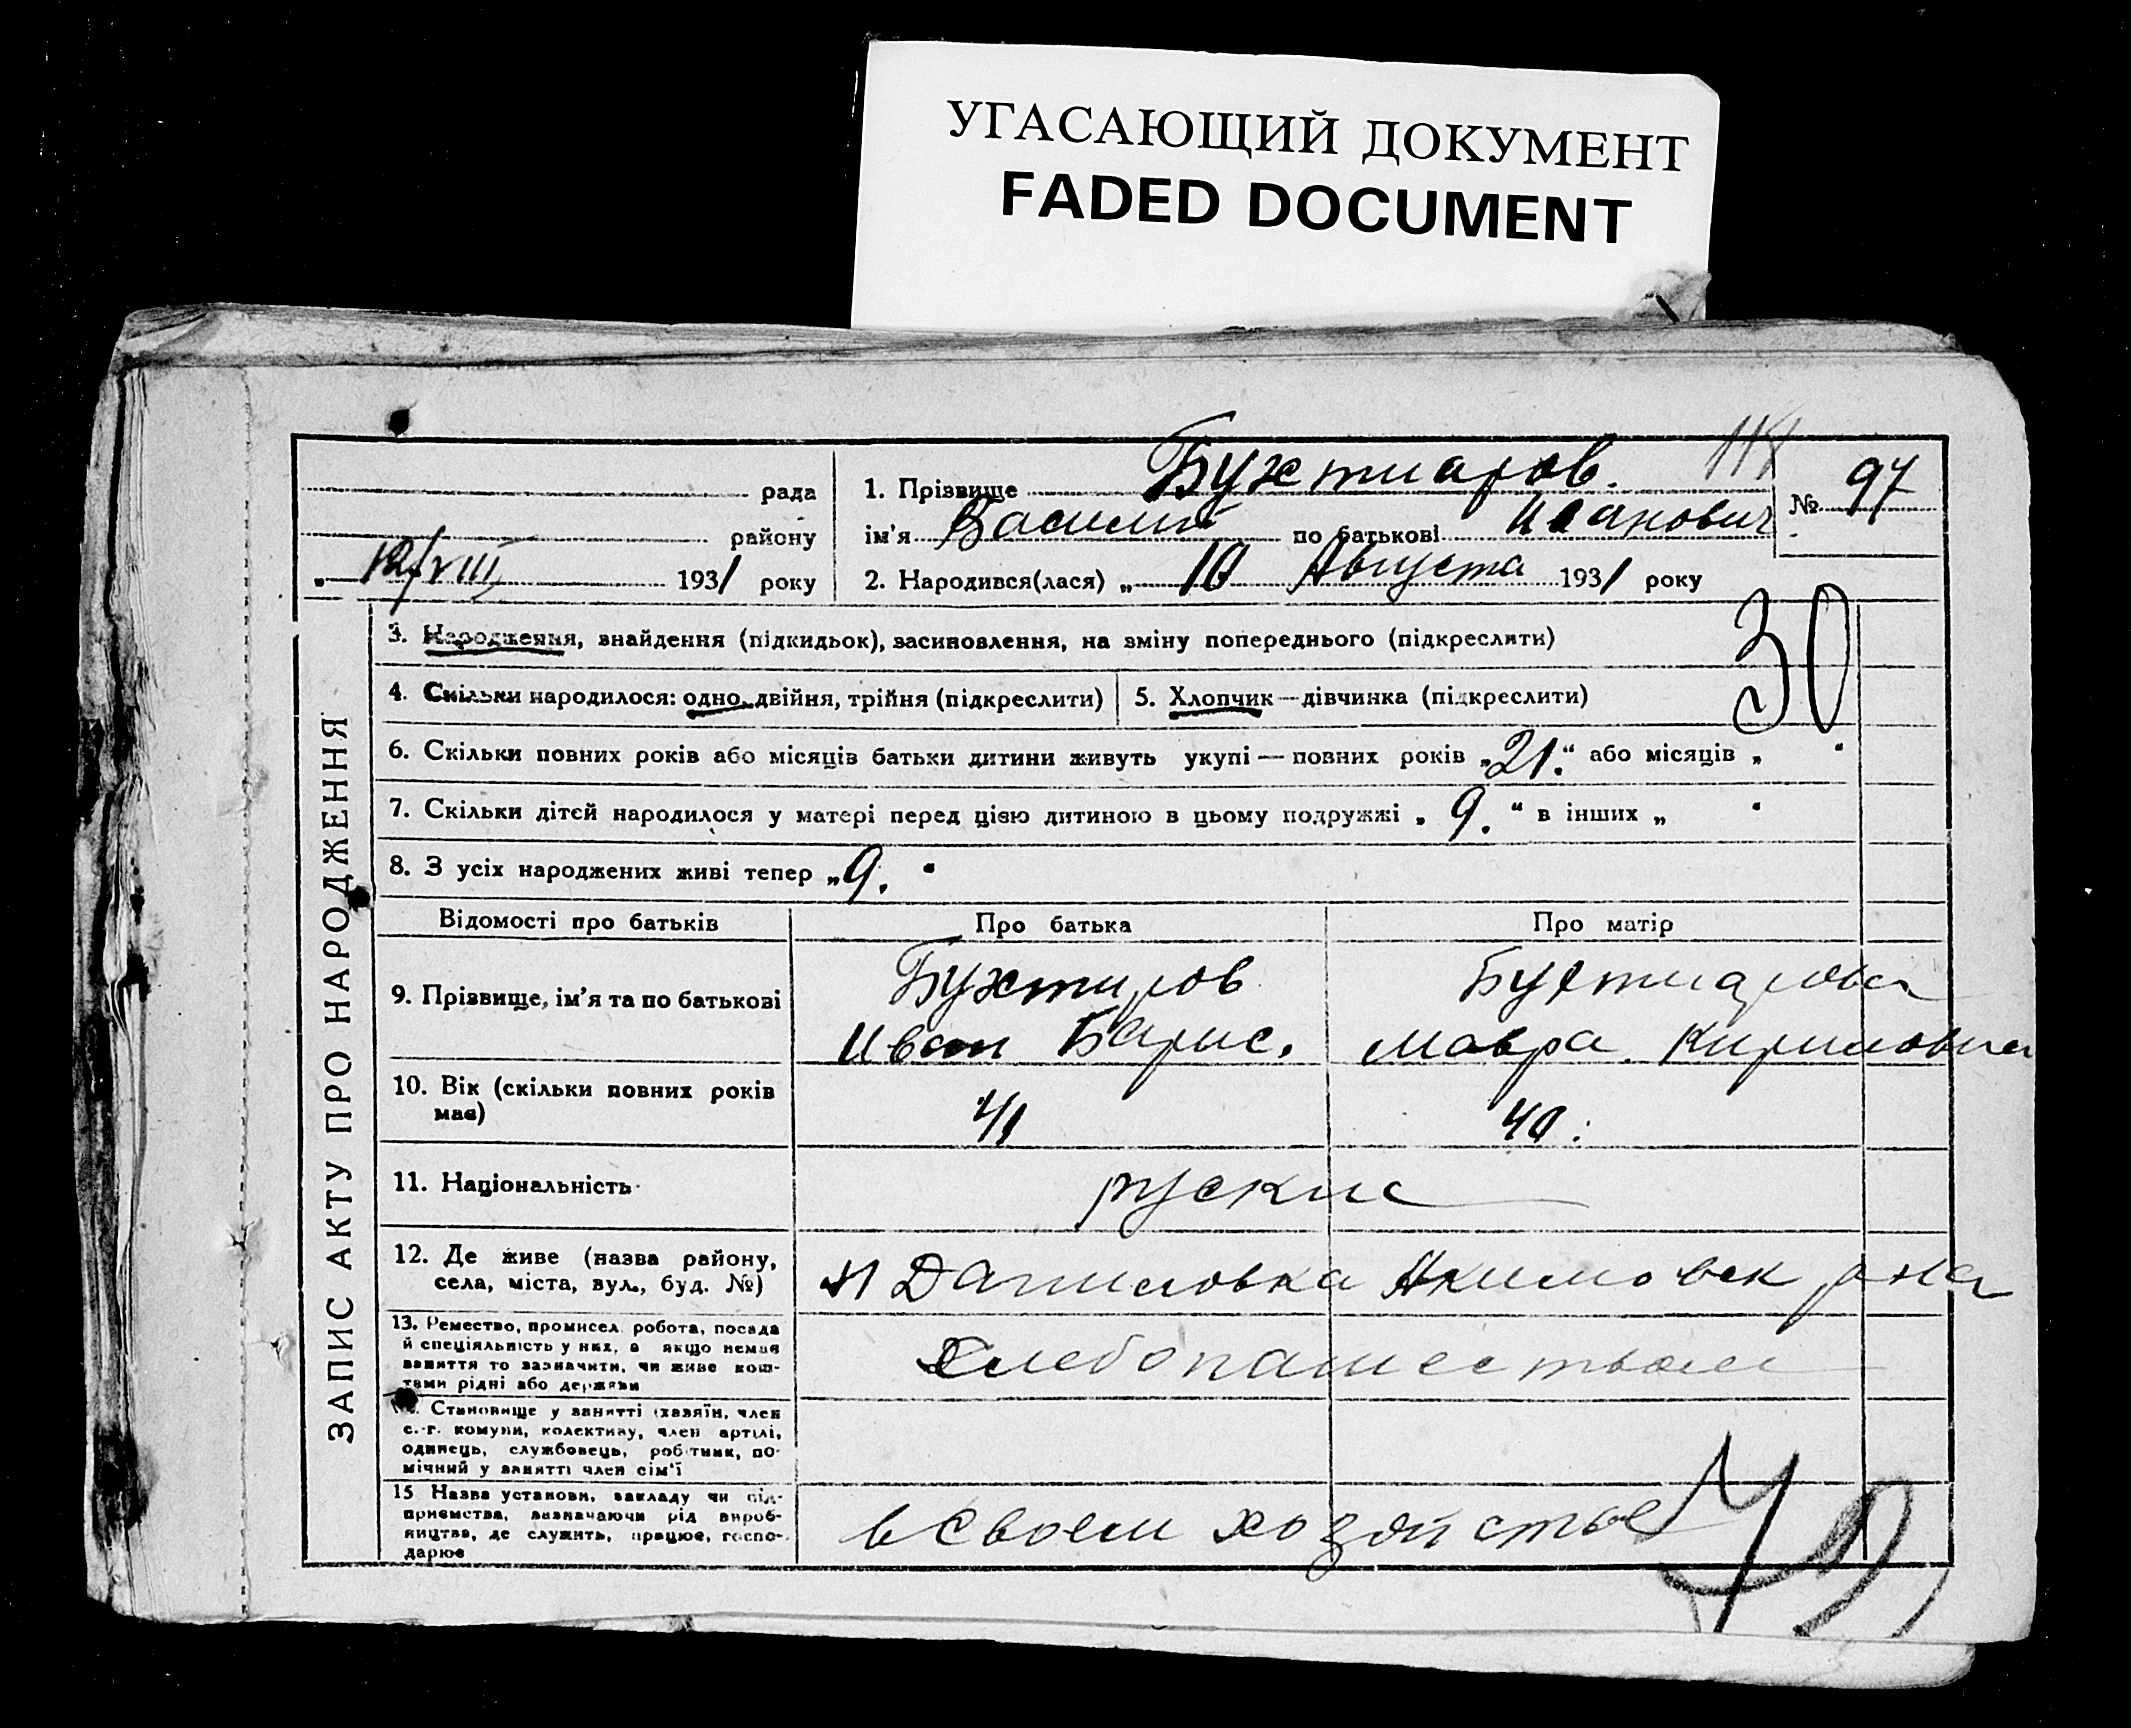 УГАСАЮЩИЙ ДОКУМЕНТ
FADED DOCUMENT
118
рада
району
„ 12/VIII 1931 року
1. Прізвище Бухтиаров.
ім'я Василий по батькові Иванович
2. Народився(лася) „ 10 Августа 1931 року
№ 97
30
ЗАПИС АКТУ ПРО НАРОДЖЕННЯ
3. Народження, знайдення (підкидьок), засиновлення, на зміну попереднього (підкреслити)
4. Скільки народилося: одно, двійня, трійня (підкреслити)
5. Хлопчик—дівчинка (підкреслити)
6. Скільки повних років або місяців батьки дитини живуть укупі — повних років „21.“ або місяців „ “
7. Скільки дітей народилося у матері перед цією дитиною в цьому подружжі „ 9. “ в інших „ “
8. З усіх народжених живі тепер „9. “
Відомості про батьків
Про батька
Про матір
9. Прізвище, ім'я та по батькові
Бухтиров
Иван Барис.
Бухтиарова
Мавра. Кириловна
10. Вік (скільки повних років
має)
41
40.
11. Національність
руские
12. Де живе (назва району,
села, міста, вул., буд. №)
Даниловка Акимовск р-на
13. Ремество, промисел, робота, посада
й спеціяльність у них, а якщо немає
заняття то зазначити, чи живе кош-
тами рідні або держави
Хлебопашеством
14. Становище у занятті (хазяїн, член
с.-г. комуни, колективу, член артілі,
одинець, службовець, робітник, по-
мічний у занятті член сім'ї
15 Назва установи, закладу чи під-
приємства, зазначаючи рід вироб-
ництва, де служить, працює, госпо-
дарює
в своем хозяйстве